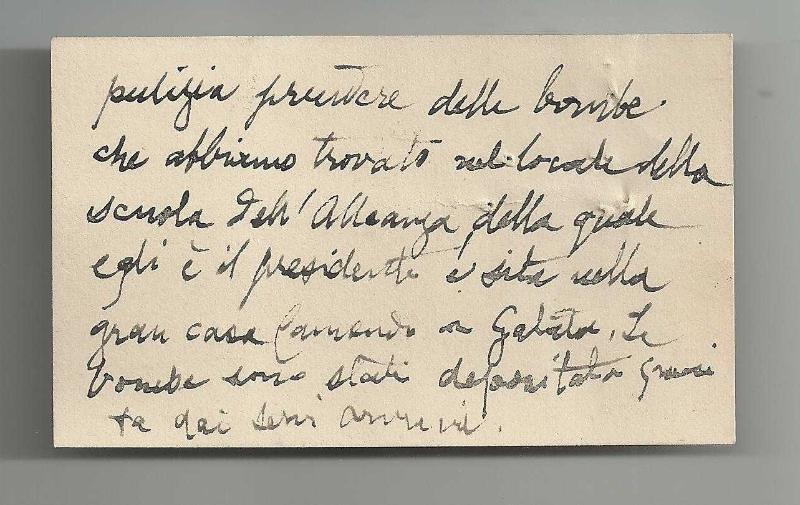 pulizia prendere delle bombe.
che abbiamo trovato nel locale della
scuola dell'Alleanza, della quale
egli è il presidente e sita nella
gran casa Camondo a Galata. Le
bombe sono stati depositata
ta dai